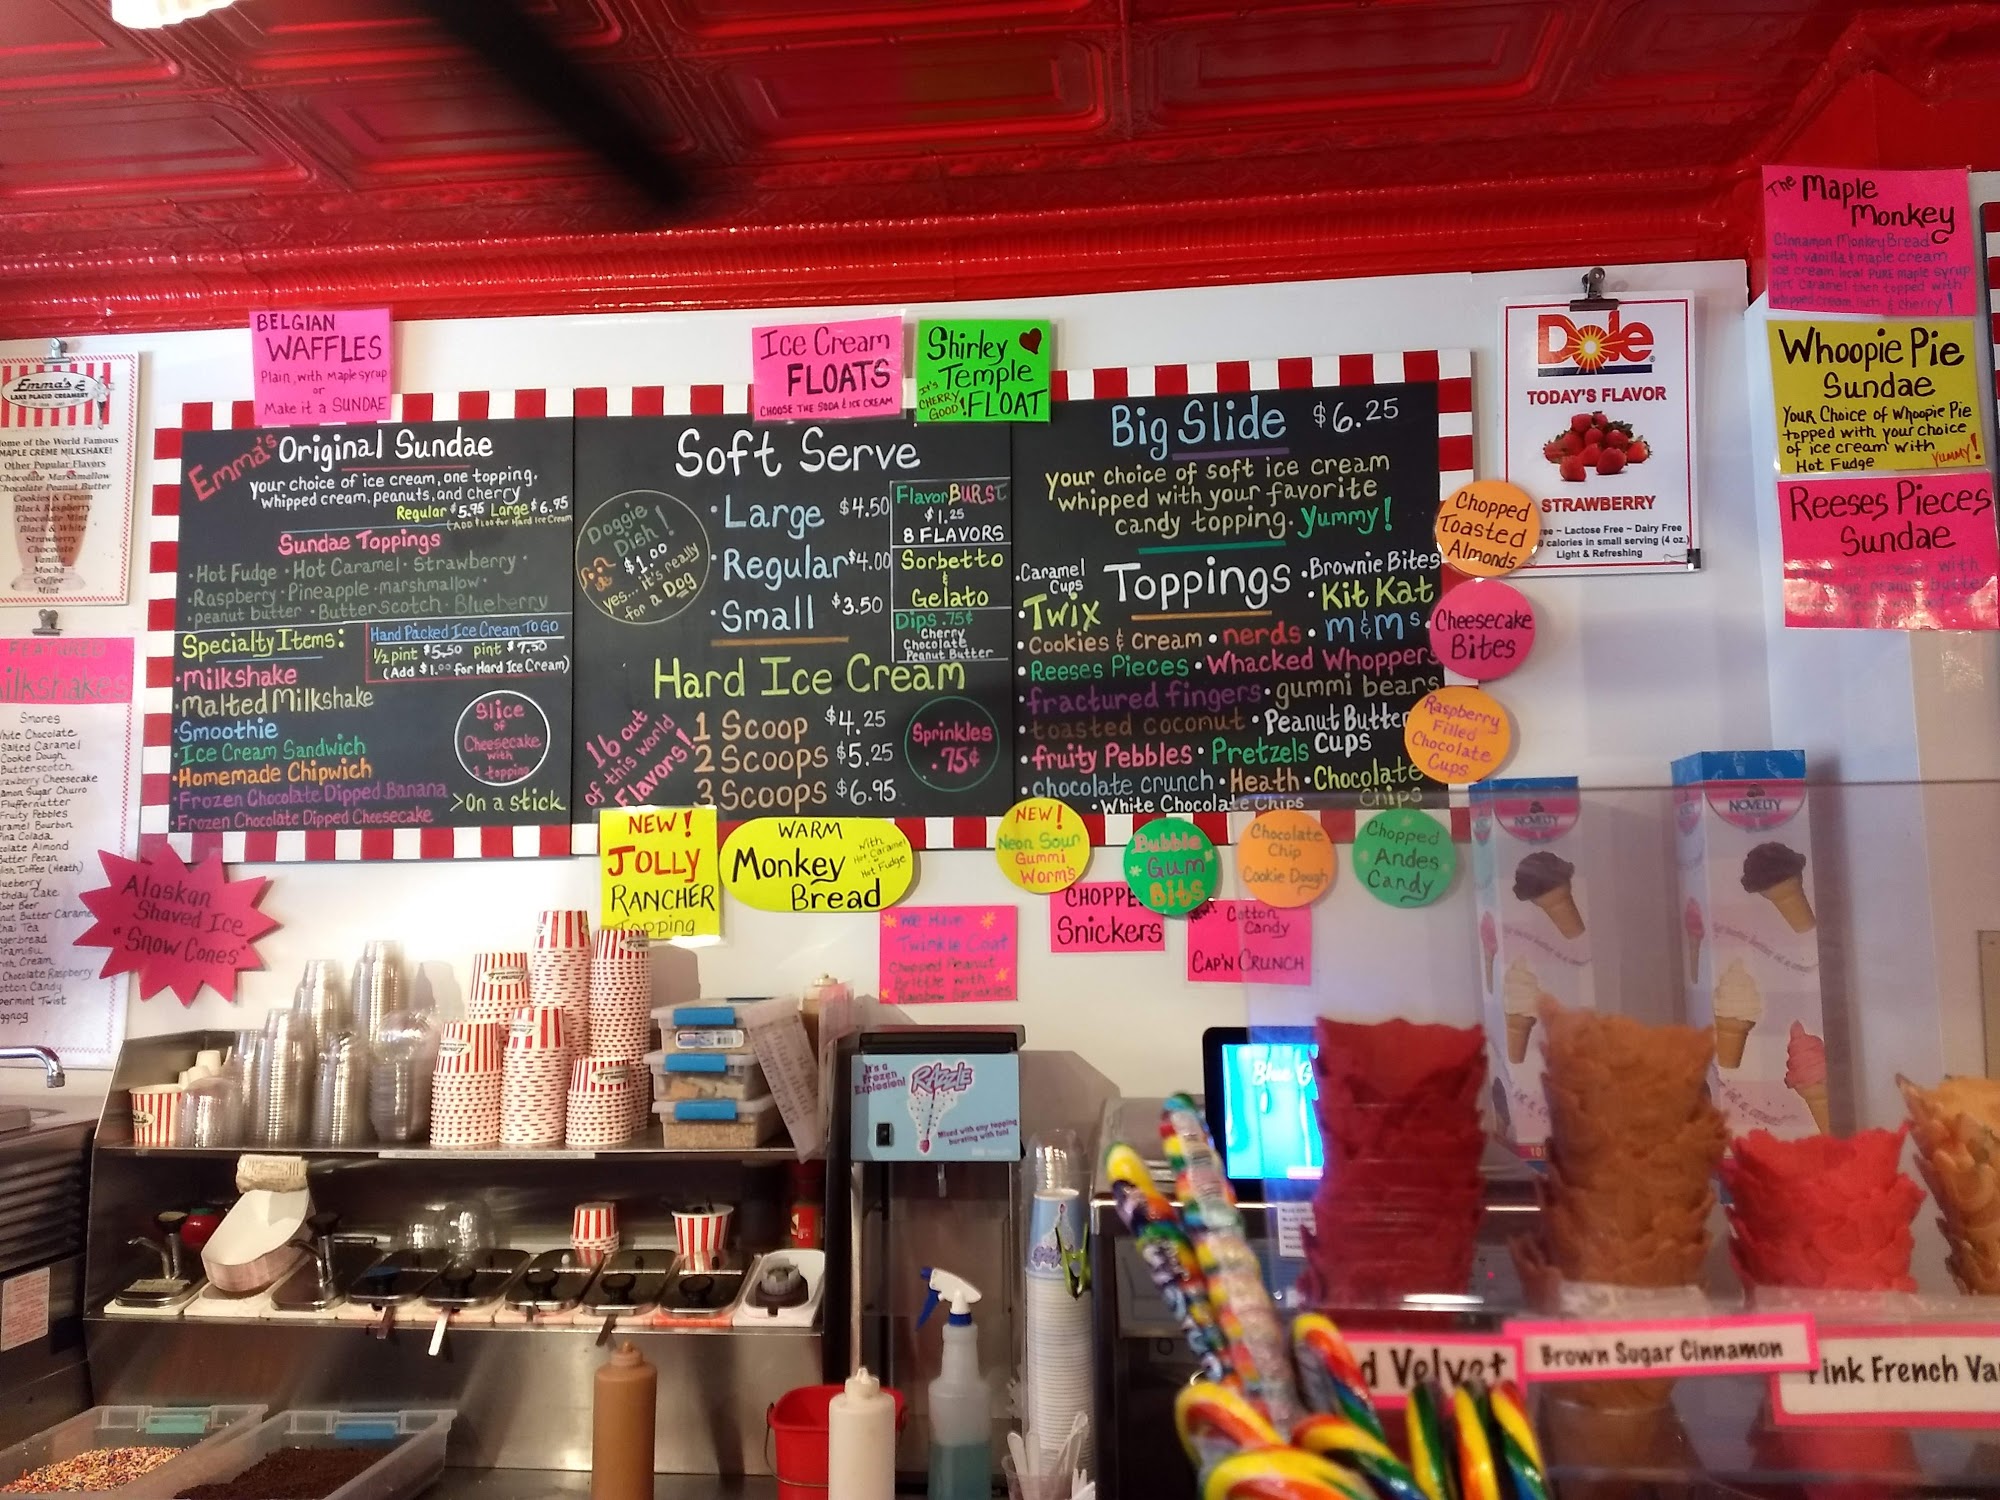 Emma's
LAKE PLACID CREAMERY
Home of the World Famous
MAPLE CREME MILKSHAKE!
Other Popular Flavors
Chocolate Marshmallow
Chocolate Peanut Butter
Cookies & Cream
Black Raspberry
Chocolate Mint
Black & White
Strawberry
Chocolate
Vanilla
Mocha
Coffee
Mint
FEATURED
Milkshakes
Smores
White Chocolate
Salted Caramel
Cookie Dough
Butterscotch
Strawberry Cheesecake
Sugar Churro
Fluffernutter
Fruity Pebbles
Caramel Bourbon
Pina Colada
Chocolate Almond
Butter Pecan
(Heath)
Blueberry
Birthday Cake
Root Beer
Peanut Butter Caramel
Chai Tea
Gingerbread
Tiramisu
Irish Cream
Chocolate Raspberry
Cotton Candy
Peppermint Twist
Eggnog
Alaskan
Shaved Ice
"Snow Cones"
BELGIAN
WAFFLES
Plain, with Maple syrup
or
Make it a SUNDAE
Emma's Original Sundae
your choice of ice cream, one topping,
whipped cream, peanuts, and cherry
Regular $5.95 Large $6.95
(ADD $1.00 for Hard Ice Cream
Sundae Toppings
· Hot Fudge · Hot Caramel · Strawberry
· Raspberry · Pineapple · marshmallow ·
· peanut butter · Butterscotch · Blueberry
Specialty Items:
· milkshake
· Malted Milkshake
· Smoothie
· Ice Cream Sandwich
· Homemade Chipwich
· Frozen Chocolate Dipped Banana
· Frozen Chocolate Dipped Cheesecake
> On a stick
Hand Packed Ice Cream TO GO
½ pint $5.50 pint $7.50
(Add $1.00 for Hard Ice Cream)
Slice
of
Cheesecake
with
1 topping
Ice Cream
FLOATS
CHOOSE THE SODA & ICE CREAM
Shirley
Temple
FLOAT
IT'S
CHERRY
GOOD!
Soft Serve
· Large $4.50
· Regular $4.00
· Small $3.50
Doggie
Dish!
$1.00
yes... it's really
for a Dog
Flavor BURST
$1.25
8 FLAVORS
Sorbetto
&
Gelato
Dips .75¢
Cherry
Chocolate
Peanut Butter
Hard Ice Cream
1 Scoop $4.25
2 Scoops $5.25
3 Scoops $6.95
16 out
of this world
Flavors!
Sprinkles
.75¢
Big Slide $6.25
your choice of soft ice cream
whipped with your favorite
candy topping. Yummy!
Toppings
· Caramel
Cups
· Brownie Bites
· Twix
· Kit Kat
· Cookies & cream · nerds · m&m's
· Reeses Pieces · Whacked Whoppers
· fractured fingers · gummi bears
· toasted coconut · Peanut Butter
Cups
· fruity Pebbles · Pretzels
· chocolate crunch · Heath · Chocolate
Chips
· White Chocolate Chips
Chopped
Toasted
Almonds
Cheesecake
Bites
Raspberry
Filled
Chocolate
Cups
NEW!
JOLLY
RANCHER
Topping
WARM
Monkey
Bread
with
Hot Caramel
or
Hot Fudge
NEW!
Neon Sour
Gummi
Worms
Bubble
Gum
Bits
Chocolate
Chip
Cookie Dough
Chopped
Andes
Candy
We Have
Twinkle Coat
Chopped Peanut
Brittle with
Rainbow Sprinkles
CHOPPE
Snickers
NEW!
Cotton
Candy
CAP'N CRUNCH
Dole
TODAY'S FLAVOR
STRAWBERRY
ree ~ Lactose Free ~ Dairy Free
calories in small serving (4 oz.)
Light & Refreshing
The Maple
Monkey
Cinnamon Monkey Bread
with vanilla & maple cream
ice cream local PURE maple syrup
Hot Caramel then topped with
whipped cream, nuts & cherry!
Whoopie Pie
Sundae
Your Choice of Whoopie Pie
topped with your choice
of ice cream with
Hot Fudge
YUMMY!
Reeses Pieces
Sundae
NOVELTY
NOVELTY
It's a
Frozen
Explosion!
RAZZLE
Mixed with any topping
bursting with fun!
Blue G
d Velvet
Brown Sugar Cinnamon
Pink French Va